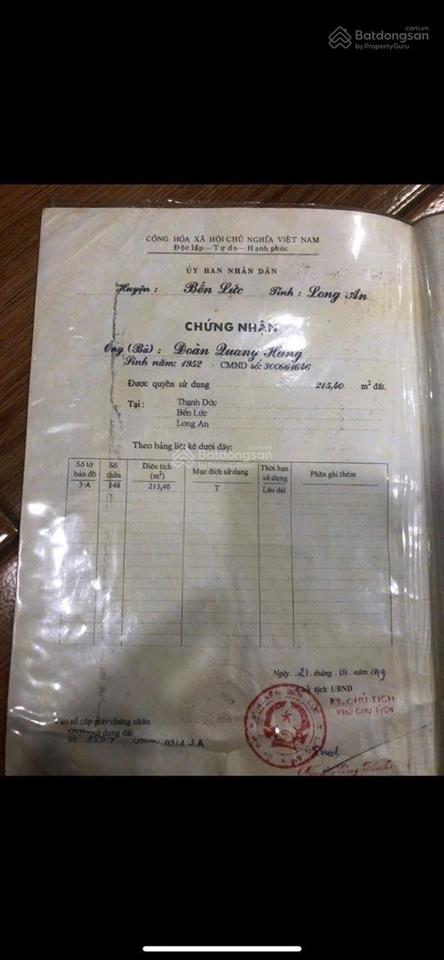 Batdongsan
.com.vn
by PropertyGuru
CỘNG HÒA XÃ HỘI CHỦ NGHĨA VIỆT NAM
Độc lập — Tự do — Hạnh phúc
ỦY BAN NHÂN DÂN
Huyện : Bến Lức Tỉnh : Long An
CHỨNG NHẬN
Ông (Bà) : Đoàn Quang Hưng
Sinh năm: 1952 - CMND số: 300661646
Được quyền sử dụng 215,40 m² đất.
Tại : Thạnh Đức
Bến Lức
Long An
Theo bảng liệt kê dưới đây:
Batdongsan
.com.vn
by PropertyGuru
Số tờ bản đồ Số thửa Diện tích (m²) Mục đích sử dụng Thời hạn sử dụng Phần ghi thêm
3-A 148 215,40 T Lâu dài
Ngày 21 tháng 10 năm
Chủ tịch UBND
KT. CHỦ TỊCH
PHÓ CHỦ TỊCH
Vào sổ cấp giấy chứng nhận
sử dụng đất